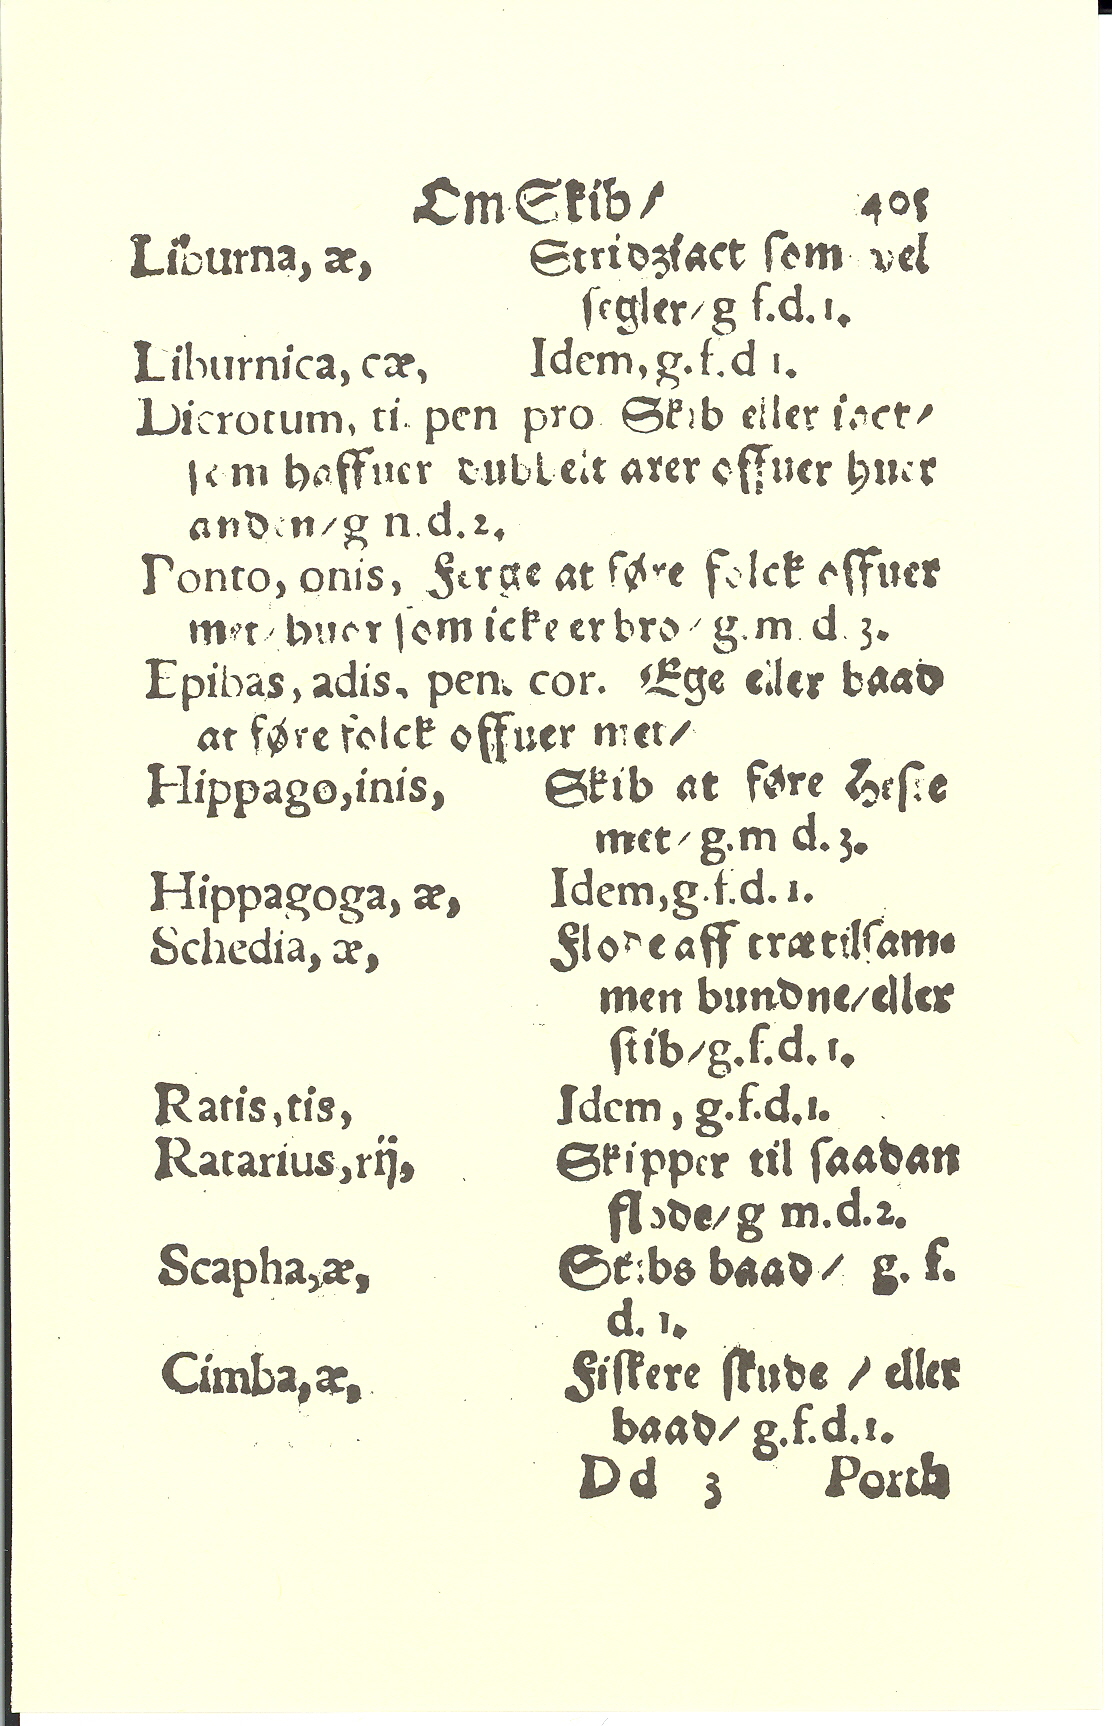 Om Skib/ 405
Liburna, æ, Stridziact som vel
segler/ g f.d. 1.
Liburnica, cæ, Idem, g. f. d 1.
Dicrotum, ti. pen pro Skib eller iact/
som haffuer dubbelt arer offuer huer
anden/ g n.d. 2.
Ponto, onis, Ferge at føre folck offuer
met/ huor som icke er bro/ g. m. d. 3.
Epibas, adis, pen. cor. Ege eller baad
at føre folck offuer met/
Hippago, inis, Skib at føre Heste
met/ g. m d. 3.
Hippagoga, æ, Idem, g. f. d. 1.
Schedia, æ, Flode aff træ tilsam-
men bundne/ eller
skib/ g. f. d. 1.
Ratis, tis, Idem, g. f. d. 1.
Ratarius, rij, Skipper til saadan
flode/ g m. d. 2.
Scapha, æ, Skibs baad/ g. f.
d. 1.
Cimba, æ, Fiskere skude / eller
baad/ g. f. d. 1.
Dd 3 Porth